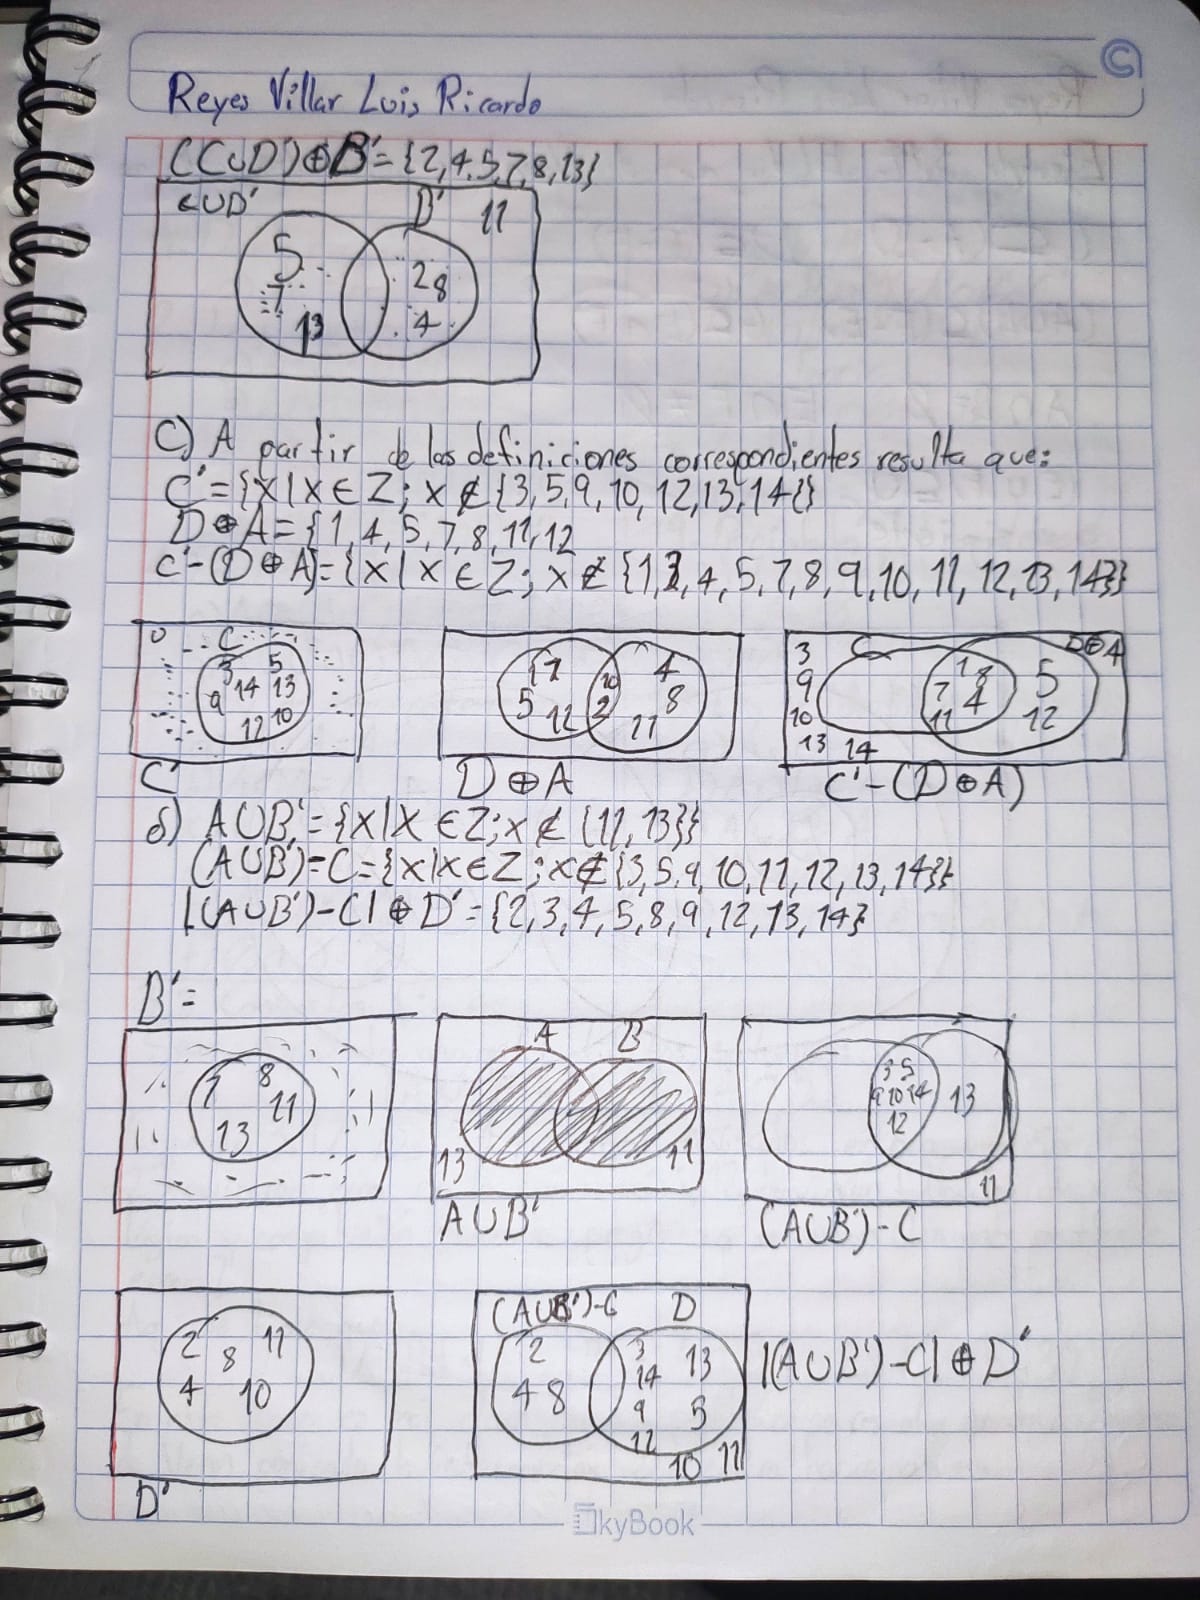 Reyes Villar Luis Ricardo
(CUD')⊕B'={2,4,5,7,8,13}
CUD' B' 11
5 2 8
7
13 4
C) A partir de las definiciones correspondientes resulta que:
C'={X|X∈Z; X∉{3,5,9,10,12,13,14}}
D⊕A={1,4,5,7,8,11,12
C'-(D⊕A)={X|X∈Z; X∉{1,3,4,5,7,8,9,10,11,12,13,14}}
U C
3 5
9 14 13
12 10
C'
17 10 4
5 12 2 8
11
D⊕A
3 C D⊕A
9 1 8 5
10 7 4
11 12
13 14
C'-(D⊕A)
δ) AUB'={X|X∈Z;X∉{11,13}}
(AUB')=C={X|X∈Z;X∉{3,5,9,10,11,12,13,14}}
|(AUB')-C|⊕D'={2,3,4,5,8,9,12,13,14}
B'=
7 8
11
13
A B
13 11
AUB'
3 5
9 10 14 13
12
11
(AUB')-C
2 8 11
4 10
D'
(AUB')-C D
2 3 13
4 8 14
9 5
12
10 11
|(AUB')-C|⊕D'
SkyBook